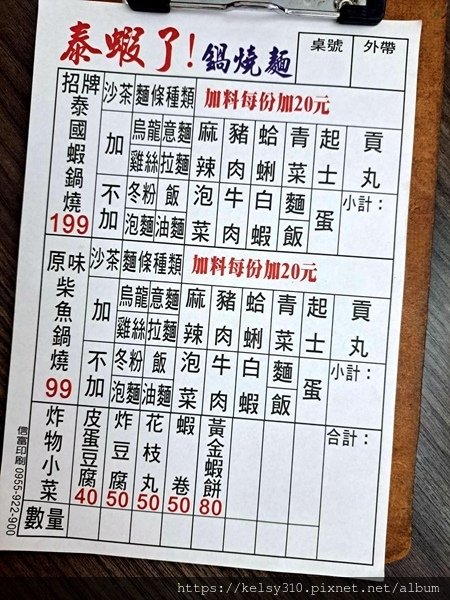 泰蝦了! 鍋燒麵 桌號 外帶
招牌泰國蝦鍋燒 199
沙茶 麵條種類 加料每份加20元
加 不加
烏龍 意麵
雞絲 拉麵
冬粉 飯
泡麵 油麵
麻辣 豬肉 蛤蜊 青菜 起士 貢丸
泡菜 牛肉 白蝦 麵飯 蛋 小計：
原味柴魚鍋燒 99
沙茶 麵條種類 加料每份加20元
加 不加
烏龍 意麵
雞絲 拉麵
冬粉 飯
泡麵 油麵
麻辣 豬肉 蛤蜊 青菜 起士 貢丸
泡菜 牛肉 白蝦 麵飯 蛋 小計：
炸物小菜 皮蛋豆腐 40 炸豆腐 50 花枝丸 50 蝦卷 50 黃金蝦餅 80 合計：
數量
信富印刷 0955-922-900
https://kelsy310.pixnet.net/album